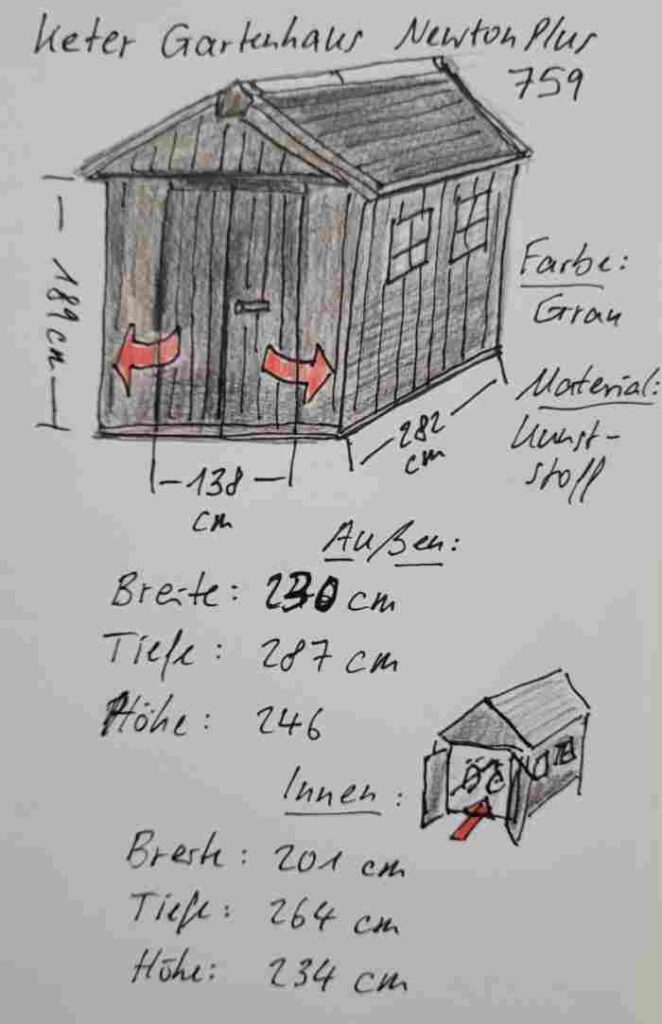 Keter Gartenhaus Newton Plus
759
189 cm
Farbe:
Grau
Material:
Kunst-
stoff
282
cm
138
cm
Außen:
Breite: 230 cm
Tiefe: 287 cm
Höhe: 246
Innen:
Breite: 201 cm
Tiefe: 264 cm
Höhe: 234 cm